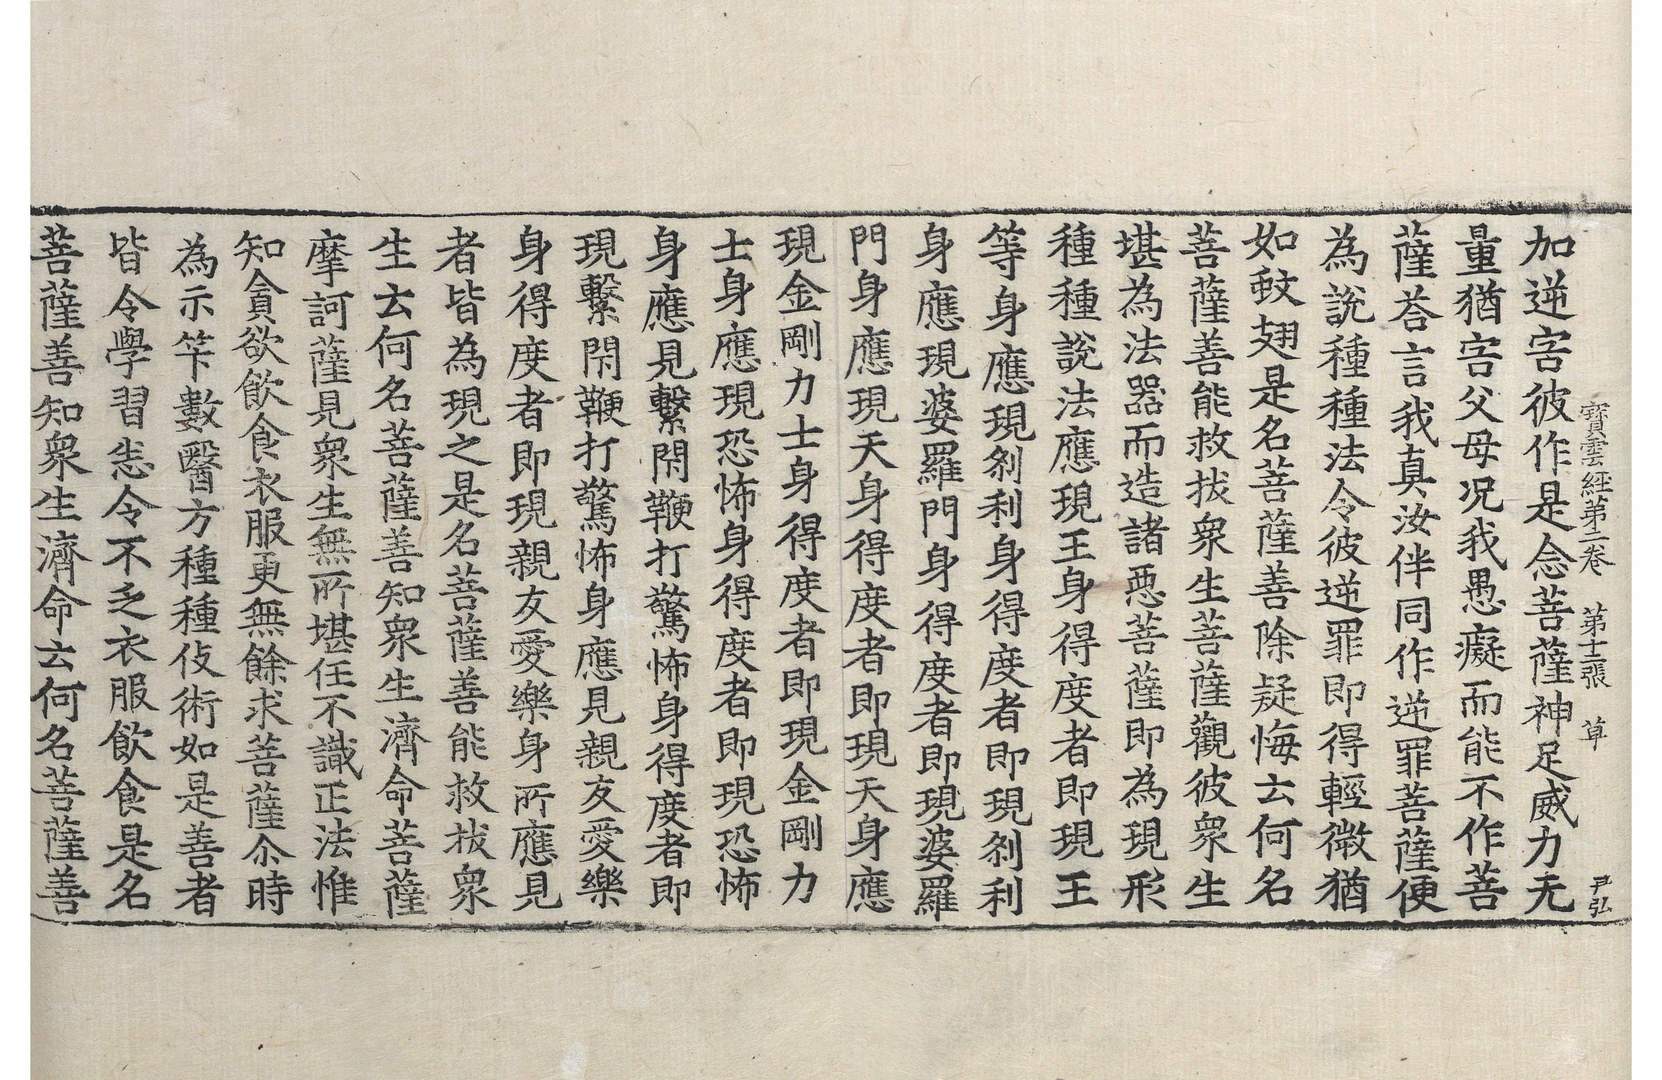 寶雲經第二卷　第十二張　草　尹弘
加逆害彼作是念菩薩神足威力无
量猶害父母况我愚癡而能不作菩
薩荅言我真汝伴同作逆罪菩薩便
為說種種法令彼逆罪即得輕微猶
如蚊翅是名菩薩善除疑悔云何名
菩薩善能救拔衆生菩薩觀彼衆生
堪為法器而造諸惡菩薩即為現形
種種說法應現王身得度者即現王
等身應現刹利身得度者即現刹利
身應現婆羅門身得度者即現婆羅
門身應現天身得度者即現天身應
現金剛力士身得度者即現金剛力
士身應現恐怖身得度者即現恐怖
身應見繫閇鞭打驚怖身得度者即
現繫閇鞭打驚怖身應見親友愛樂
身得度者即現親友愛樂身所應見
者皆為現之是名菩薩善能救拔衆
生云何名菩薩善知衆生濟命菩薩
摩訶薩見衆生無所堪任不識正法惟
知貪欲飲食衣服更無餘求菩薩尒時
為示笇數醫方種種伎術如是善者
皆令學習恙令不乏衣服飲食是名
菩薩善知衆生濟命云何名菩薩善